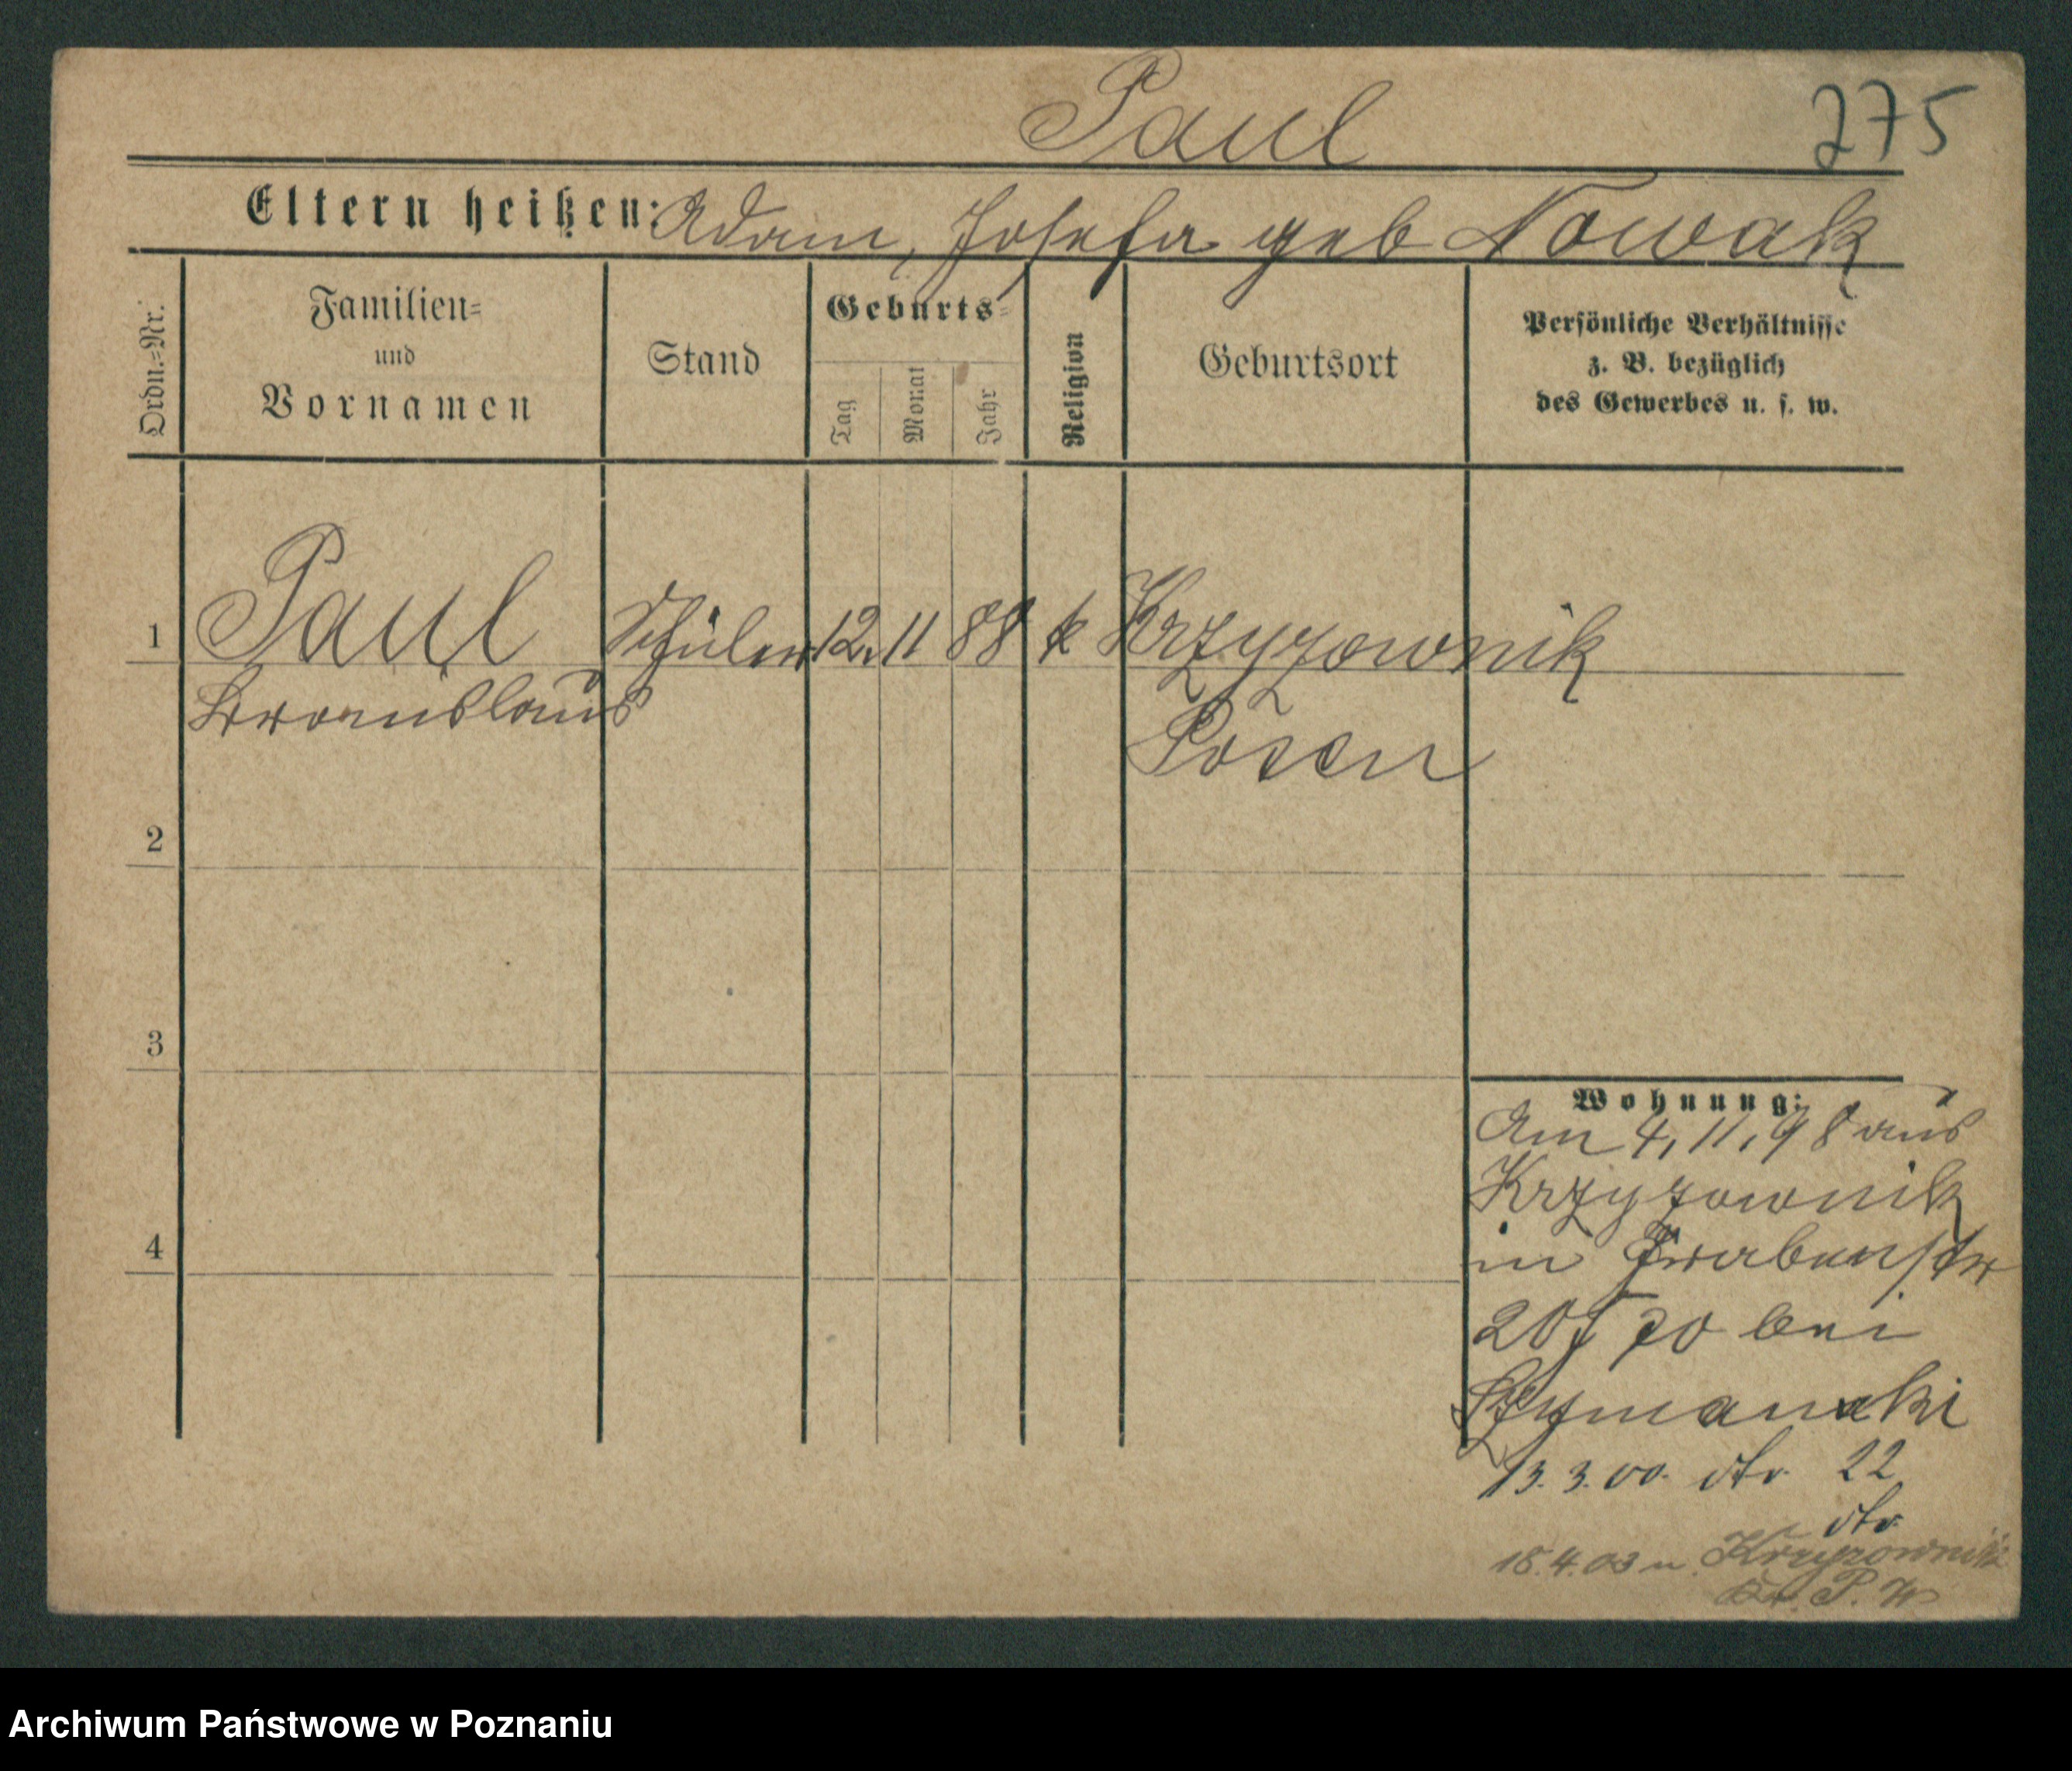 Paul 275
Eltern heißen: Adam, Josefa geb Nowak
Ordn.-Nr. Familien- und Vornamen Stand Geburts- Tag Monat Jahr Religion Geburtsort Persönliche Verhältnisse z. B. bezüglich des Gewerbes u. s. w.
1 Paul Schüler 12. 11 88 k Krzyzownik
Bronislaus Posen
2
3
Wohnung:
Am 4, 11, 98 aus
Krzyzownik
4 in Grabenstr
20 bei
Szymanski
13. 3. 00. dto 22
dto
18. 4. 03 n. Krzyzownik
Kr. P. W
Archiwum Państwowe w Poznaniu